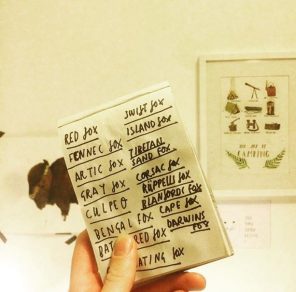 RED FOX
FENNEC FOX
ARTIC FOX
GRAY FOX
CULPEO
BENGAL FOX
BAT RED FOX
ATING FOX
SWIFT FOX
ISLAND FOX
TIBETAN
SAND FOX
CORSAC FOX
RÜPPELLS FOX
BLANFORDS FOX
CAPE FOX
DARWINS
FOX
CAMPING